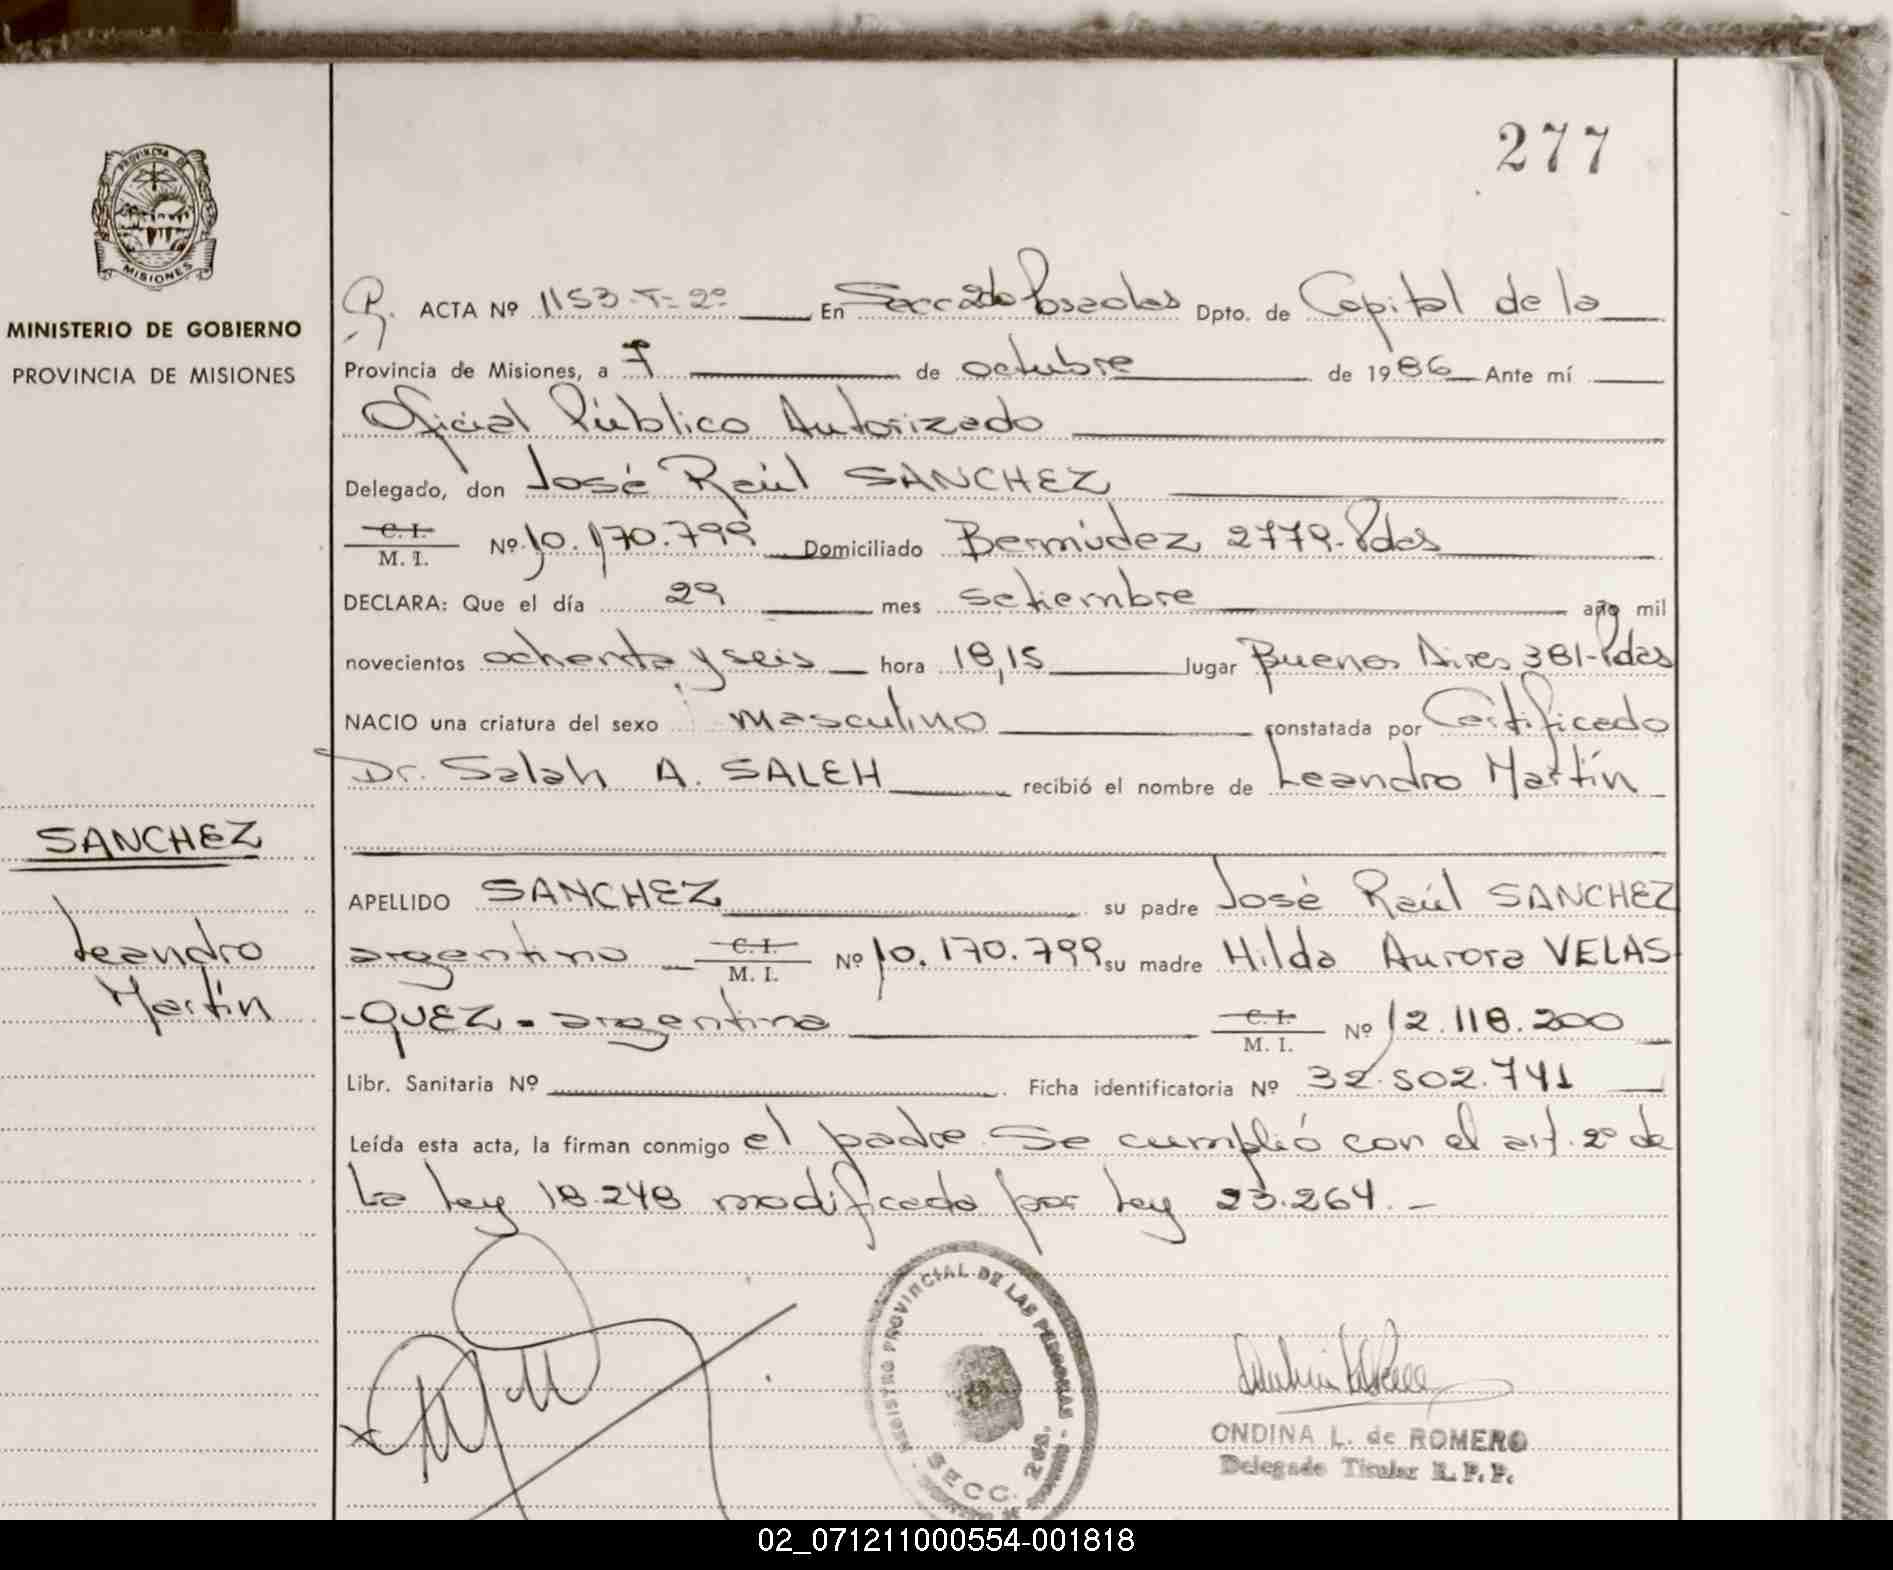 277
PROVINCIA DE
MISIONES
MINISTERIO DE GOBIERNO
PROVINCIA DE MISIONES
ACTA Nº 1153-T=2º En Secc 2da Posadas Dpto. de Capital de la
Provincia de Misiones, a 7 de octubre de 1986 Ante mí
Oficial Público Autorizado
Delegado, don José Raúl SANCHEZ
C. I.
M. I. Nº 10.170.799 Domiciliado Bermúdez 2779-Pdas
DECLARA: Que el día 29 mes setiembre año mil
novecientos ochenta y seis hora 18,15 lugar Buenos Aires 381-Pdas
NACIO una criatura del sexo masculino constatada por Certificado
Dr. Salah A. SALEH recibió el nombre de Leandro Martín
SANCHEZ
Leandro
Martín
APELLIDO SANCHEZ su padre José Raúl SANCHEZ
argentino C. I. M. I. Nº 10.170.799 su madre Hilda Aurora VELAS
-QUEZ - argentina C. I. M. I. Nº 12.118.200
Libr. Sanitaria Nº Ficha identificatoria Nº 32.502.741
Leída esta acta, la firman conmigo el padre. Se cumplió con el art. 2º de
La Ley 18.248 modificada por Ley 23.264.-
REGISTRO PROVINCIAL DE LAS PERSONAS
SECC. 2da.
ONDINA L. de ROMERO
Delegado Titular R. P. P.
02_071211000554-001818